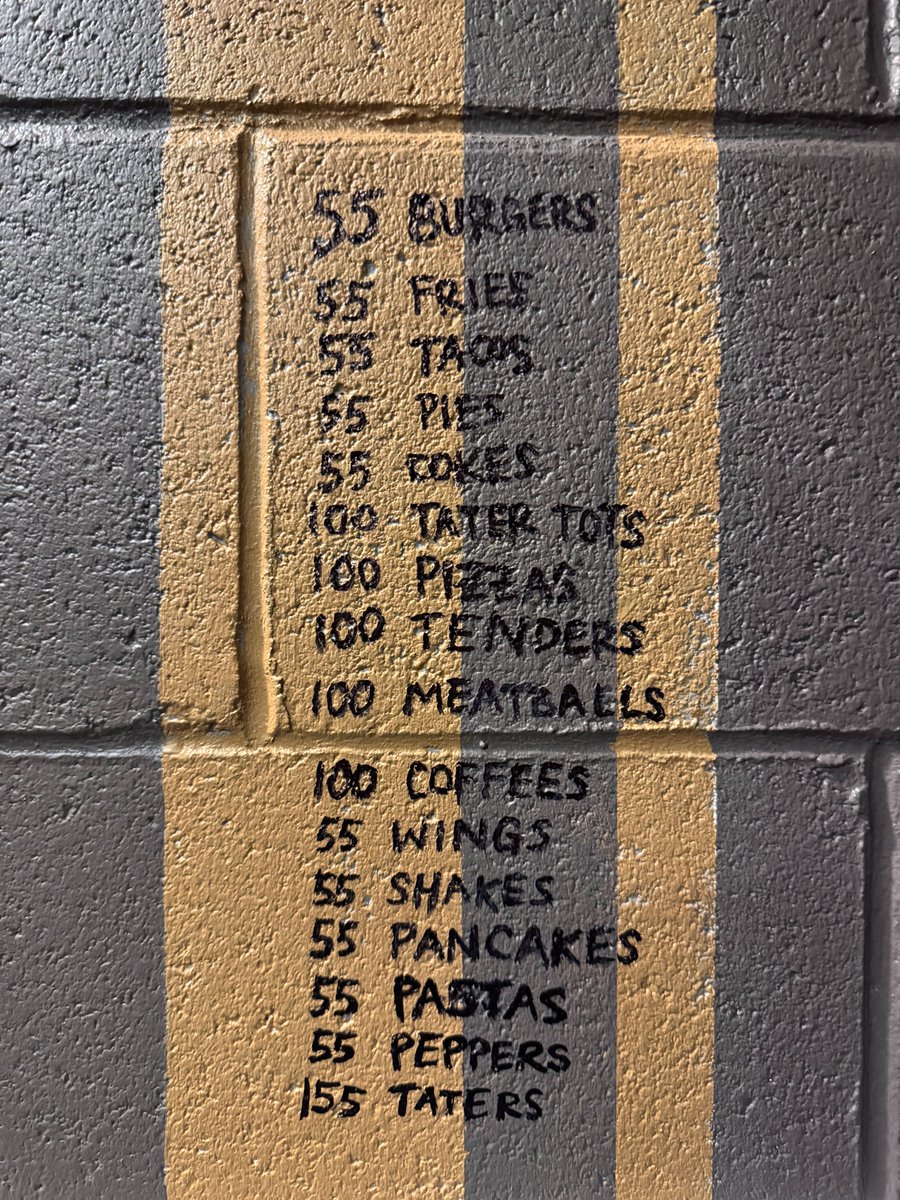 55 BURGERS
55 FRIES
55 TACOS
55 PIES
55 COKES
100 TATER TOTS
100 PIZZAS
100 TENDERS
100 MEATBALLS
100 COFFEES
55 WINGS
55 SHAKES
55 PANCAKES
55 PASTAS
55 PEPPERS
155 TATERS